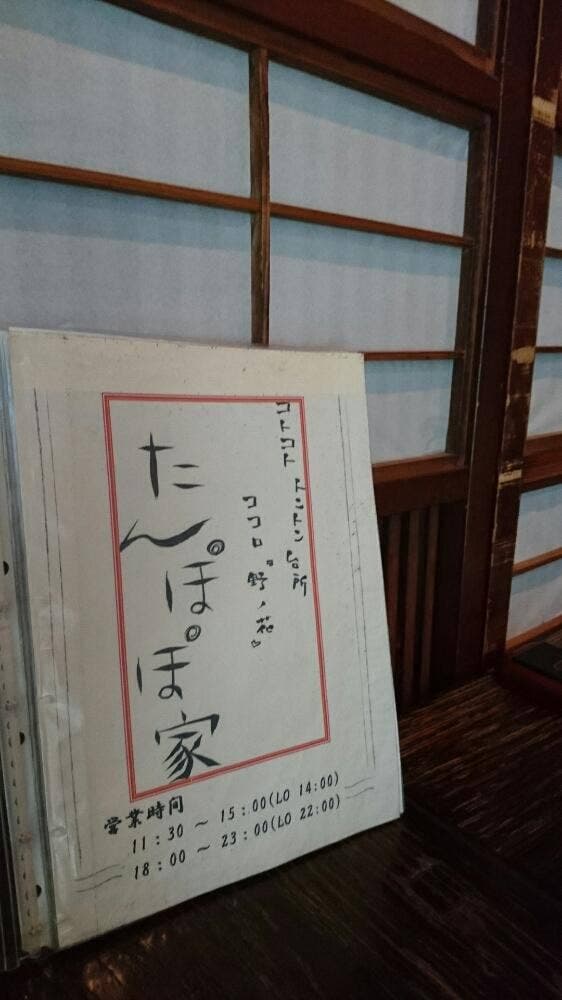 コトコト トントン台所
ココロ『野ノ花』
たんぽぽ家
営業時間
11：30 ～ 15：00(LO 14:00)
18：00 ～ 23：00(LO 22:00)